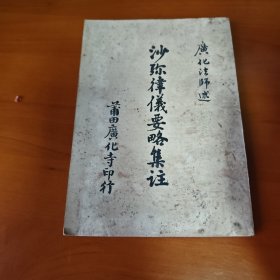 廣化法師述
沙弥律儀要略集註
莆田廣化寺印行